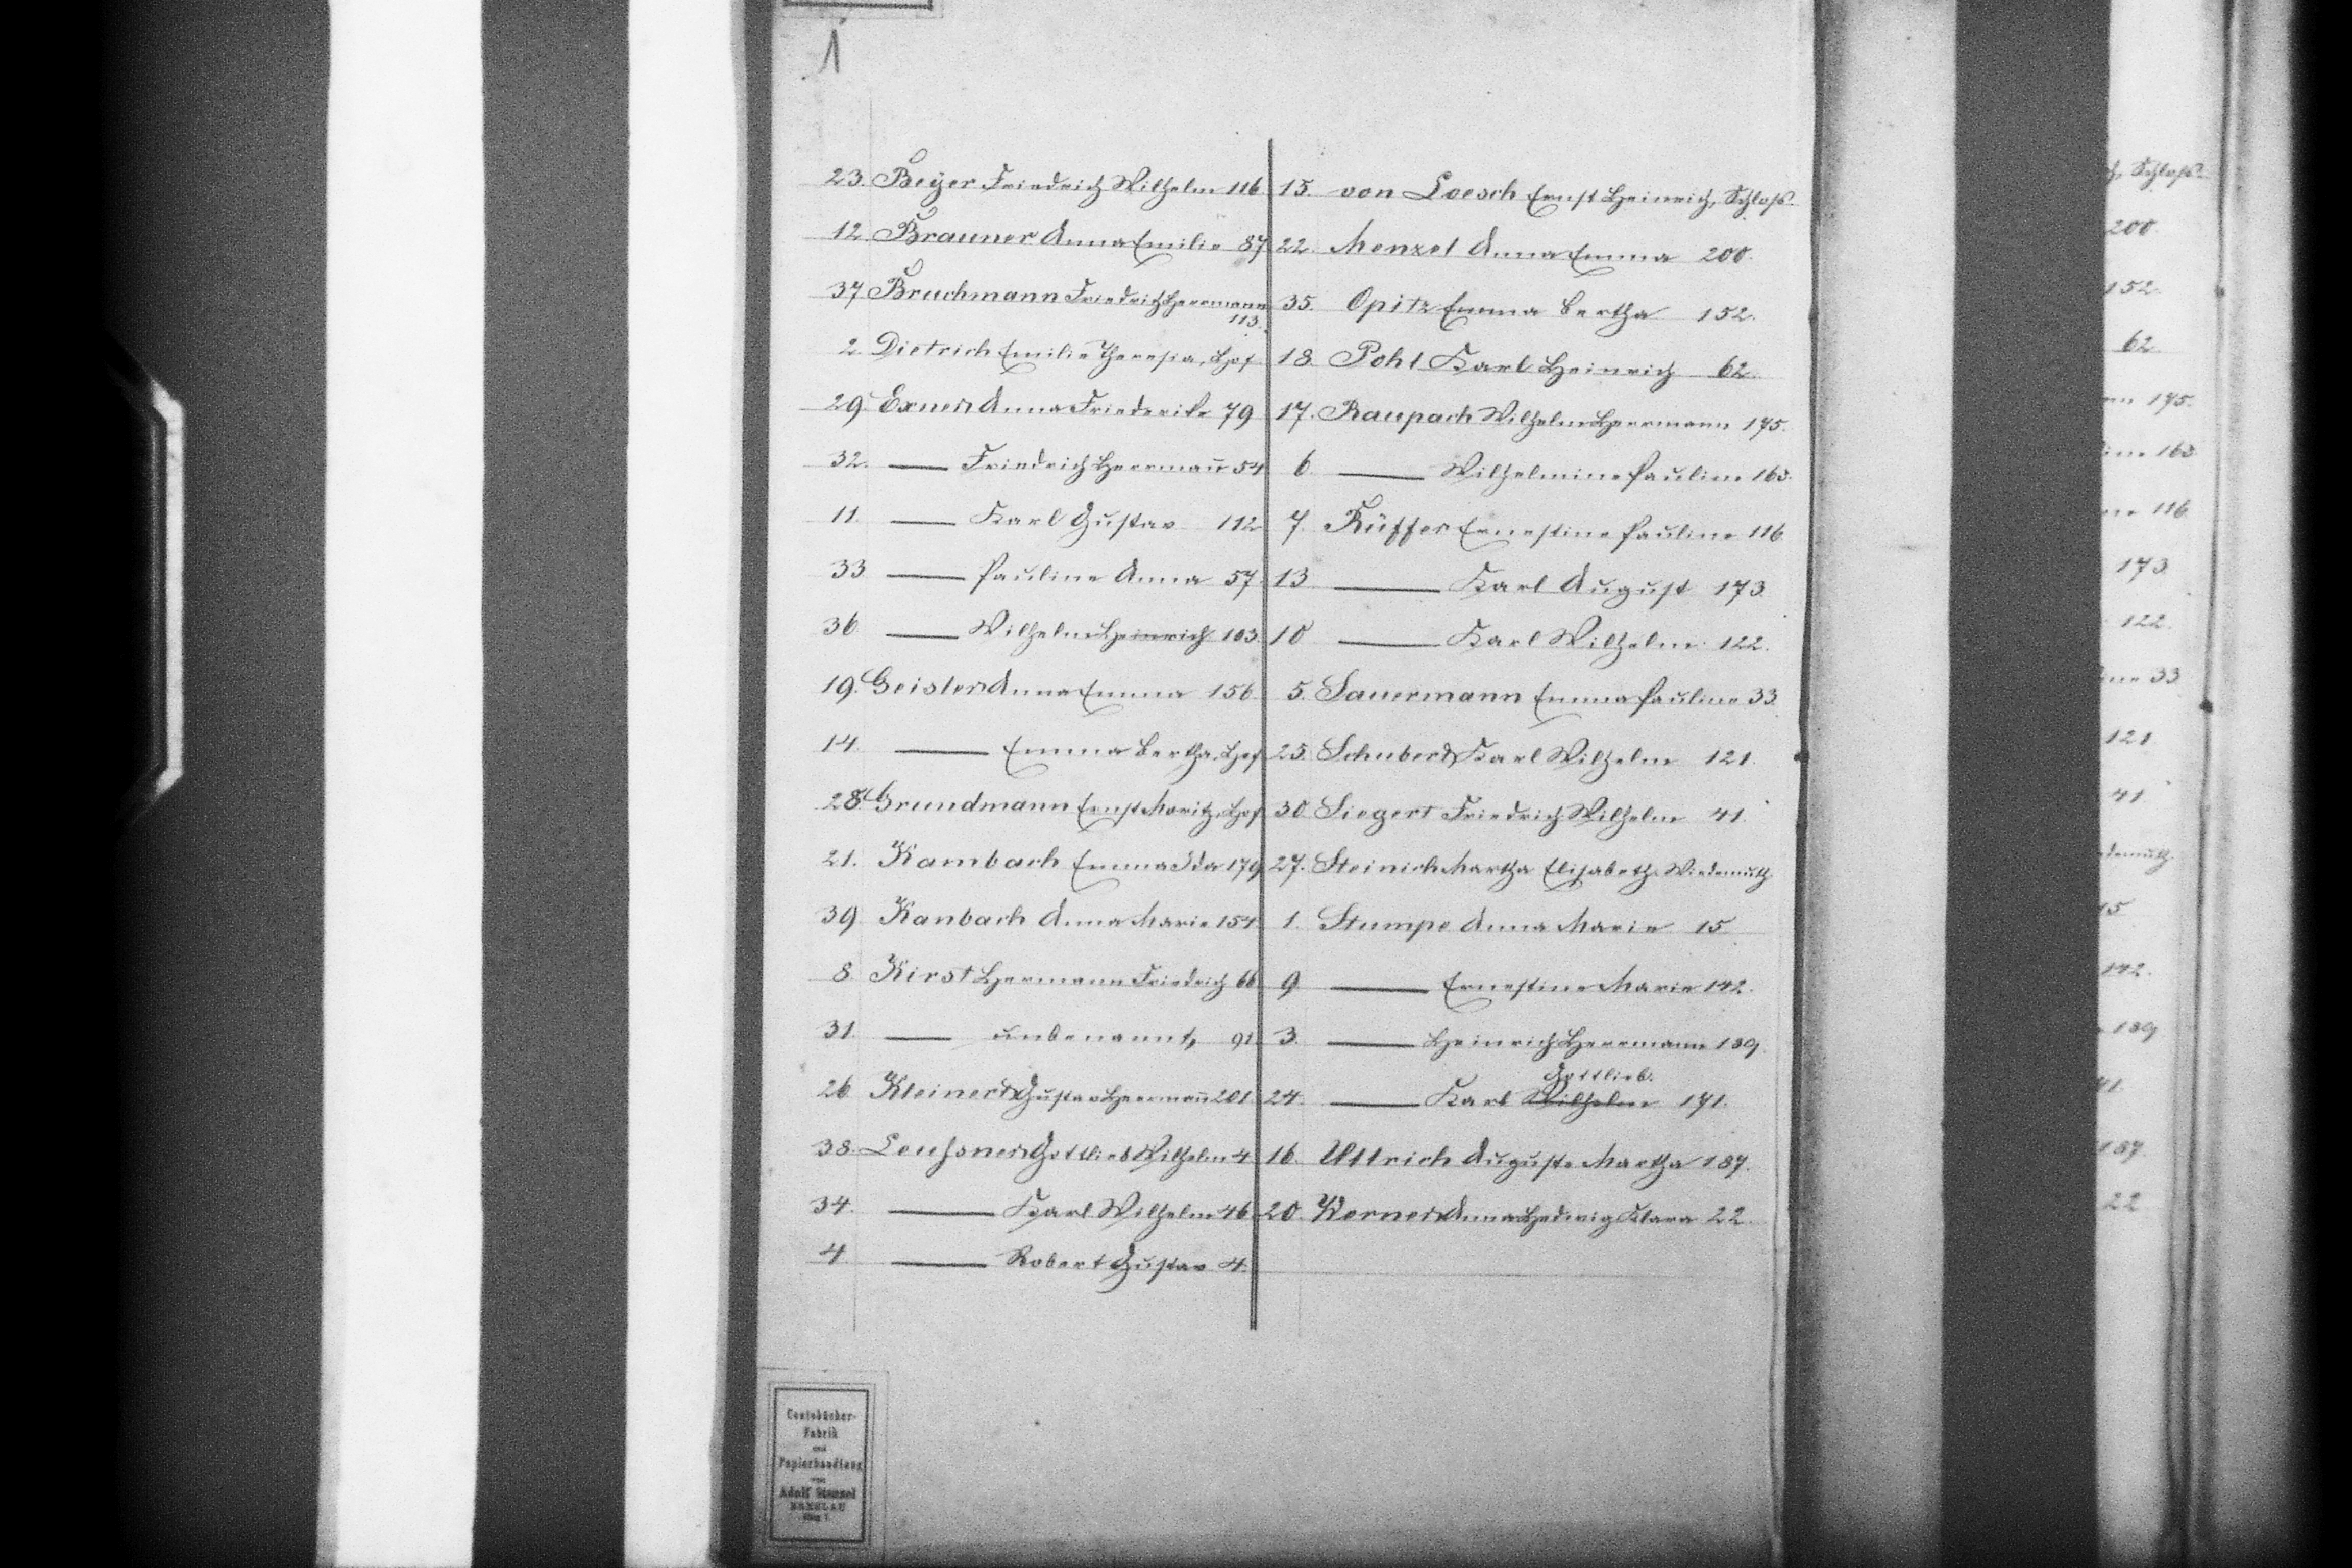 1
23. Beyer Friedrich Wilhelm 116
12. Brauner Anna Emilie 87
37. Bruchmann Friedrich Herrmann
113.
2. Dietrich Emilie Theresia, Hof
29. Exner Anna Friederike 79
32. — Friedrich Herrmañ 54
11. — Karl Gustav 112
33 — Pauline Anna 57.
36 — Wilhelm Heinrich 103.
19. Geisler Anna Emma 156.
14. — Emma Bertha, Hof
28. Grundmann Ernst Moritz, Hof
21. Kambach Emma Ida 179
39 Kanbach Anna Marie 154.
8. Kirst Hermann Friedrich 66
31. — unbenannt, 91.
26. Kleinert Gustav Herrmañ 201.
38. Leuschner Gottlieb Wilhelm 4
34. — Karl Wilhelm 46
4 — Robert Gustav 4.
15. von Loesch Ernst Heinrich, Schloß.
22. Menzel Anna Emma 200.
35. Opitz Emma Bertha 152.
18. Pohl Karl Heinrich 62.
17. Raupach Wilhelm Herrmann 175.
6 — Wilhelmine Pauline 163.
7. Rüffer Ernestine Pauline 116
13 — Karl August 173.
10 — Karl Wilhelm 122.
5. Sauermann Emma Pauline 33.
25. Schubert Karl Wilhelm 121.
30. Siegert Friedrich Wilhelm 41.
27. Steinich Martha Elisabeth Wiedemuth
1. Stumpe Anna Marie 15
9 — Ernestine Marie 142.
3. — Heinrich Herrmann 189.
Gottlieb.
24. — Karl Wilhelm 171.
16. Ulrich Auguste Martha 187.
20. Werner Anna Hedwig Klara 22
Contobücher-
Fabrik
und
Papierhandlung
von
Adolf Stenzel
BRESLAU
Schloß.
200.
152.
62
175.
163
116
173.
122.
33
121
41
15
142.
189
187.
22